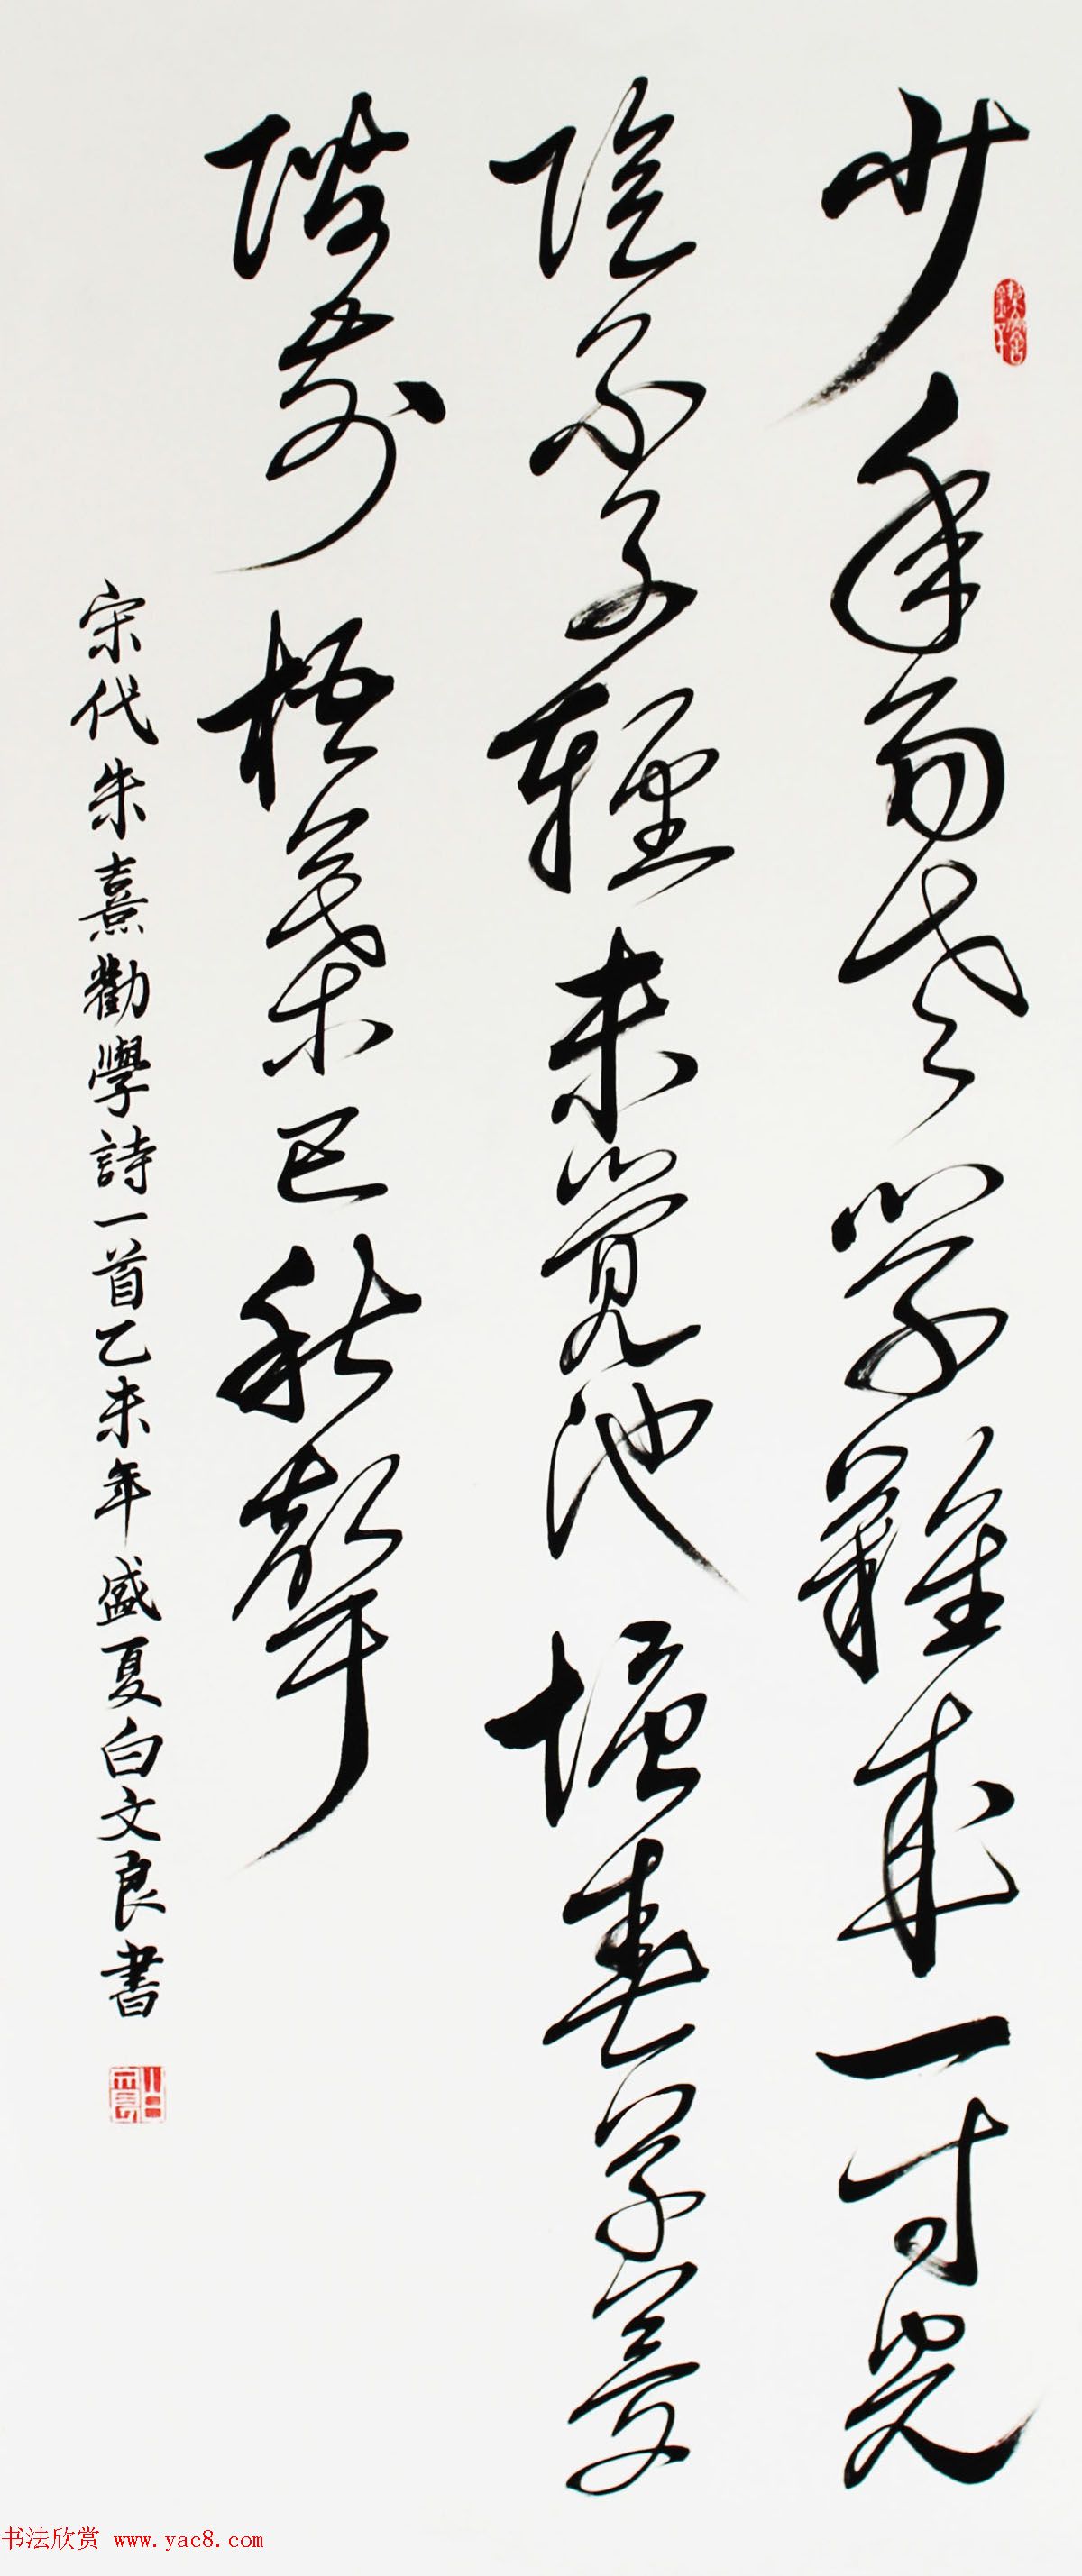 少年易老学難成一寸光
陰不可輕未覺池塘春草夢
階前梧葉已秋聲
宋代朱熹勸學詩一首乙未年盛夏白文良書
书法欣赏 www.yac8.com